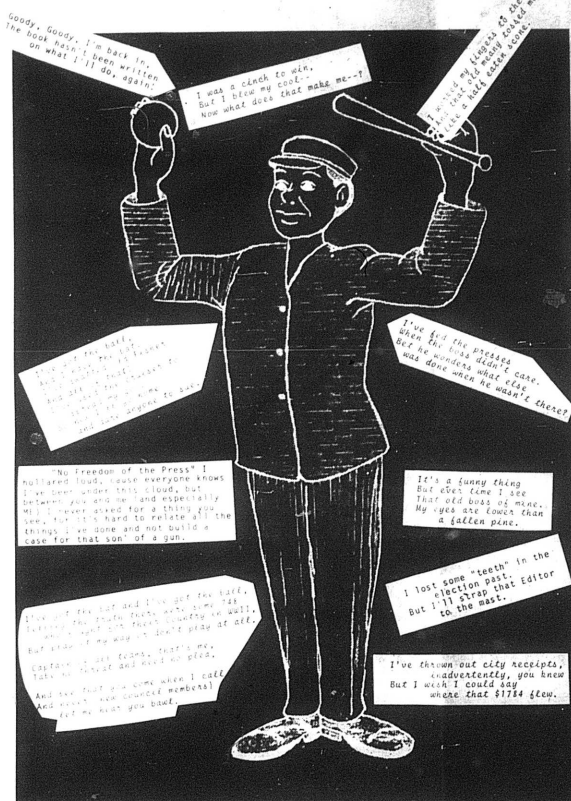 Goody, Goody, I'm back in,
The book hasn't been written
on what I'll do, again!
I was a cinch to win,
But I blew my cool--
Now what does that make me--?
I worked my fingers to the
And that old meany tossed me
like a half eaten scone.
I've got the ball,
to sue.
I've fed the presses
When the boss didn't care.
Bet he wonders what else
was done when he wasn't there?
"No Freedom of the Press" I
hollared loud, cause everyone knows
I've been under this cloud, but
between you and me (and especially
ME) I never asked for a thing you
see, for it's hard to relate all the
things I've done and not build a
case for that son' of a gun.
It's a funny thing
But ever time I see
That old boss of mine.
My eyes are lower than
a fallen pine.
I lost some "teeth" in the
election past.
But I'll strap that Editor
to the mast.
I've got the bat and I've got the ball,
But play it my way or don't play at all.
Captain of two teams, that's me,
And see that you come when I call
new council members)
let me hear you bawl.
I've thrown out city receipts,
inadvertently, you knew
But I wish I could say
where that $1784 flew.